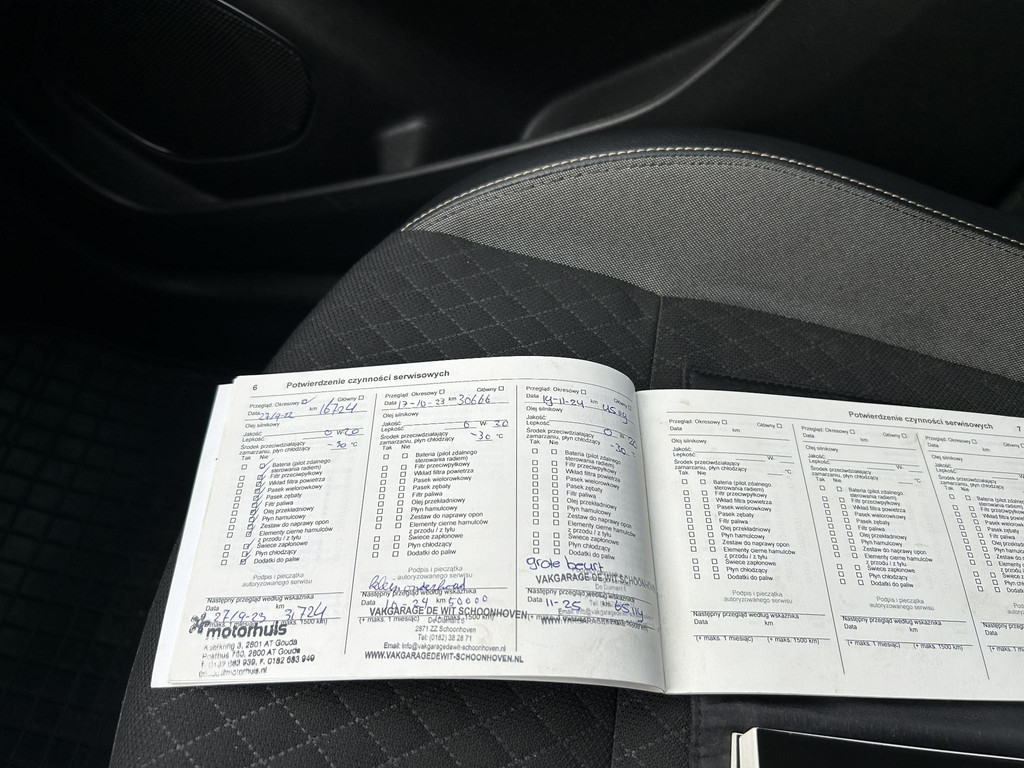 6 Potwierdzenie czynności serwisowych
Przegląd: Okresowy Główny
Data 27/9-22 km 16724
Olej silnikowy
Jakość:
Lepkość: 0 W 20
Środek przeciwdziałający
zamarzaniu, płyn chłodzący -30 °C
Tak Nie
Bateria (pilot zdalnego
sterowania radiem)
Filtr przeciwpyłkowy
Wkład filtra powietrza
Pasek wielorowkowy
Pasek zębaty
Filtr paliwa
Olej przekładniowy
Płyn hamulcowy
Zestaw do naprawy opon
Elementy cierne hamulców
z przodu / z tyłu
Świece zapłonowe
Płyn chłodzący
Dodatki do paliw
Podpis i pieczątka
autoryzowanego serwisu
Następny przegląd według wskaźnika
Data 27/9-23 km 31724
(+ maks. 1 miesiąc) (+ maks. 1500 km)
motorhuis
2801 AT Gouda
2800 AT Gouda
Przegląd: Okresowy Główny
Data 17-10-23 km 30666
Olej silnikowy
Jakość:
Lepkość: 0 W 30
Środek przeciwdziałający
zamarzaniu, płyn chłodzący -30 °C
Tak Nie
Bateria (pilot zdalnego
sterowania radiem)
Filtr przeciwpyłkowy
Wkład filtra powietrza
Pasek wielorowkowy
Pasek zębaty
Filtr paliwa
Olej przekładniowy
Płyn hamulcowy
Zestaw do naprawy opon
Elementy cierne hamulców
z przodu / z tyłu
Świece zapłonowe
Płyn chłodzący
Dodatki do paliw
Podpis i pieczątka
autoryzowanego serwisu
Następny przegląd według wskaźnika
Data km
VAKGARAGE DE WIT SCHOONHOVEN
2871 ZZ Schoonhoven
Tel: (0182) 38 28 71
Email: info@vakgaragedewit-schoonhoven.nl
WWW.VAKGARAGEDEWIT-SCHOONHOVEN.NL
Przegląd: Okresowy Główny
Data 19-11-24 km
Olej silnikowy
Jakość:
Lepkość:
Środek przeciwdziałający
zamarzaniu, płyn chłodzący
Tak Nie
Bateria (pilot zdalnego
sterowania radiem)
Filtr przeciwpyłkowy
Wkład filtra powietrza
Pasek wielorowkowy
Pasek zębaty
Filtr paliwa
Olej przekładniowy
Płyn hamulcowy
Zestaw do naprawy opon
Elementy cierne hamulców
z przodu / z tyłu
Świece zapłonowe
Płyn chłodzący
Dodatki do paliw
grote beurt
VAKGARAGE DE WIT SCHOONHOVEN
Następny przegląd według wskaźnika
Data 11-25 km
Potwierdzenie czynności serwisowych 7
Przegląd: Okresowy Główny
Data km
Olej silnikowy
Jakość:
Lepkość: W
Środek przeciwdziałający
zamarzaniu, płyn chłodzący °C
Tak Nie
Bateria (pilot zdalnego
sterowania radiem)
Filtr przeciwpyłkowy
Wkład filtra powietrza
Pasek wielorowkowy
Pasek zębaty
Filtr paliwa
Olej przekładniowy
Płyn hamulcowy
Zestaw do naprawy opon
Elementy cierne hamulców
z przodu / z tyłu
Świece zapłonowe
Płyn chłodzący
Dodatki do paliw
Podpis i pieczątka
autoryzowanego serwisu
Następny przegląd według wskaźnika
Data km
(+ maks. 1 miesiąc) (+ maks. 1500 km)
Przegląd: Okresowy Główny
Data km
Olej silnikowy
Jakość:
Lepkość: W
Środek przeciwdziałający
zamarzaniu, płyn chłodzący °C
Tak Nie
Bateria (pilot zdalnego
sterowania radiem)
Filtr przeciwpyłkowy
Wkład filtra powietrza
Pasek wielorowkowy
Pasek zębaty
Filtr paliwa
Olej przekładniowy
Płyn hamulcowy
Zestaw do naprawy opon
Elementy cierne hamulców
z przodu / z tyłu
Świece zapłonowe
Płyn chłodzący
Dodatki do paliw
Podpis i pieczątka
autoryzowanego serwisu
Następny przegląd według wskaźnika
Data km
(+ maks. 1 miesiąc) (+ maks. 1500 km)
Przegląd: Okresowy
Data
Olej silnikowy
Jakość:
Lepkość:
Środek przeciwdziałający
zamarzaniu, płyn chłodzący
Tak Nie
Bateria (pilot zdalnego
sterowania radiem)
Filtr przeciwpyłkowy
Wkład filtra powietrza
Pasek wielorowkowy
Pasek zębaty
Filtr paliwa
Następny przegląd
Data
(+ maks. 1